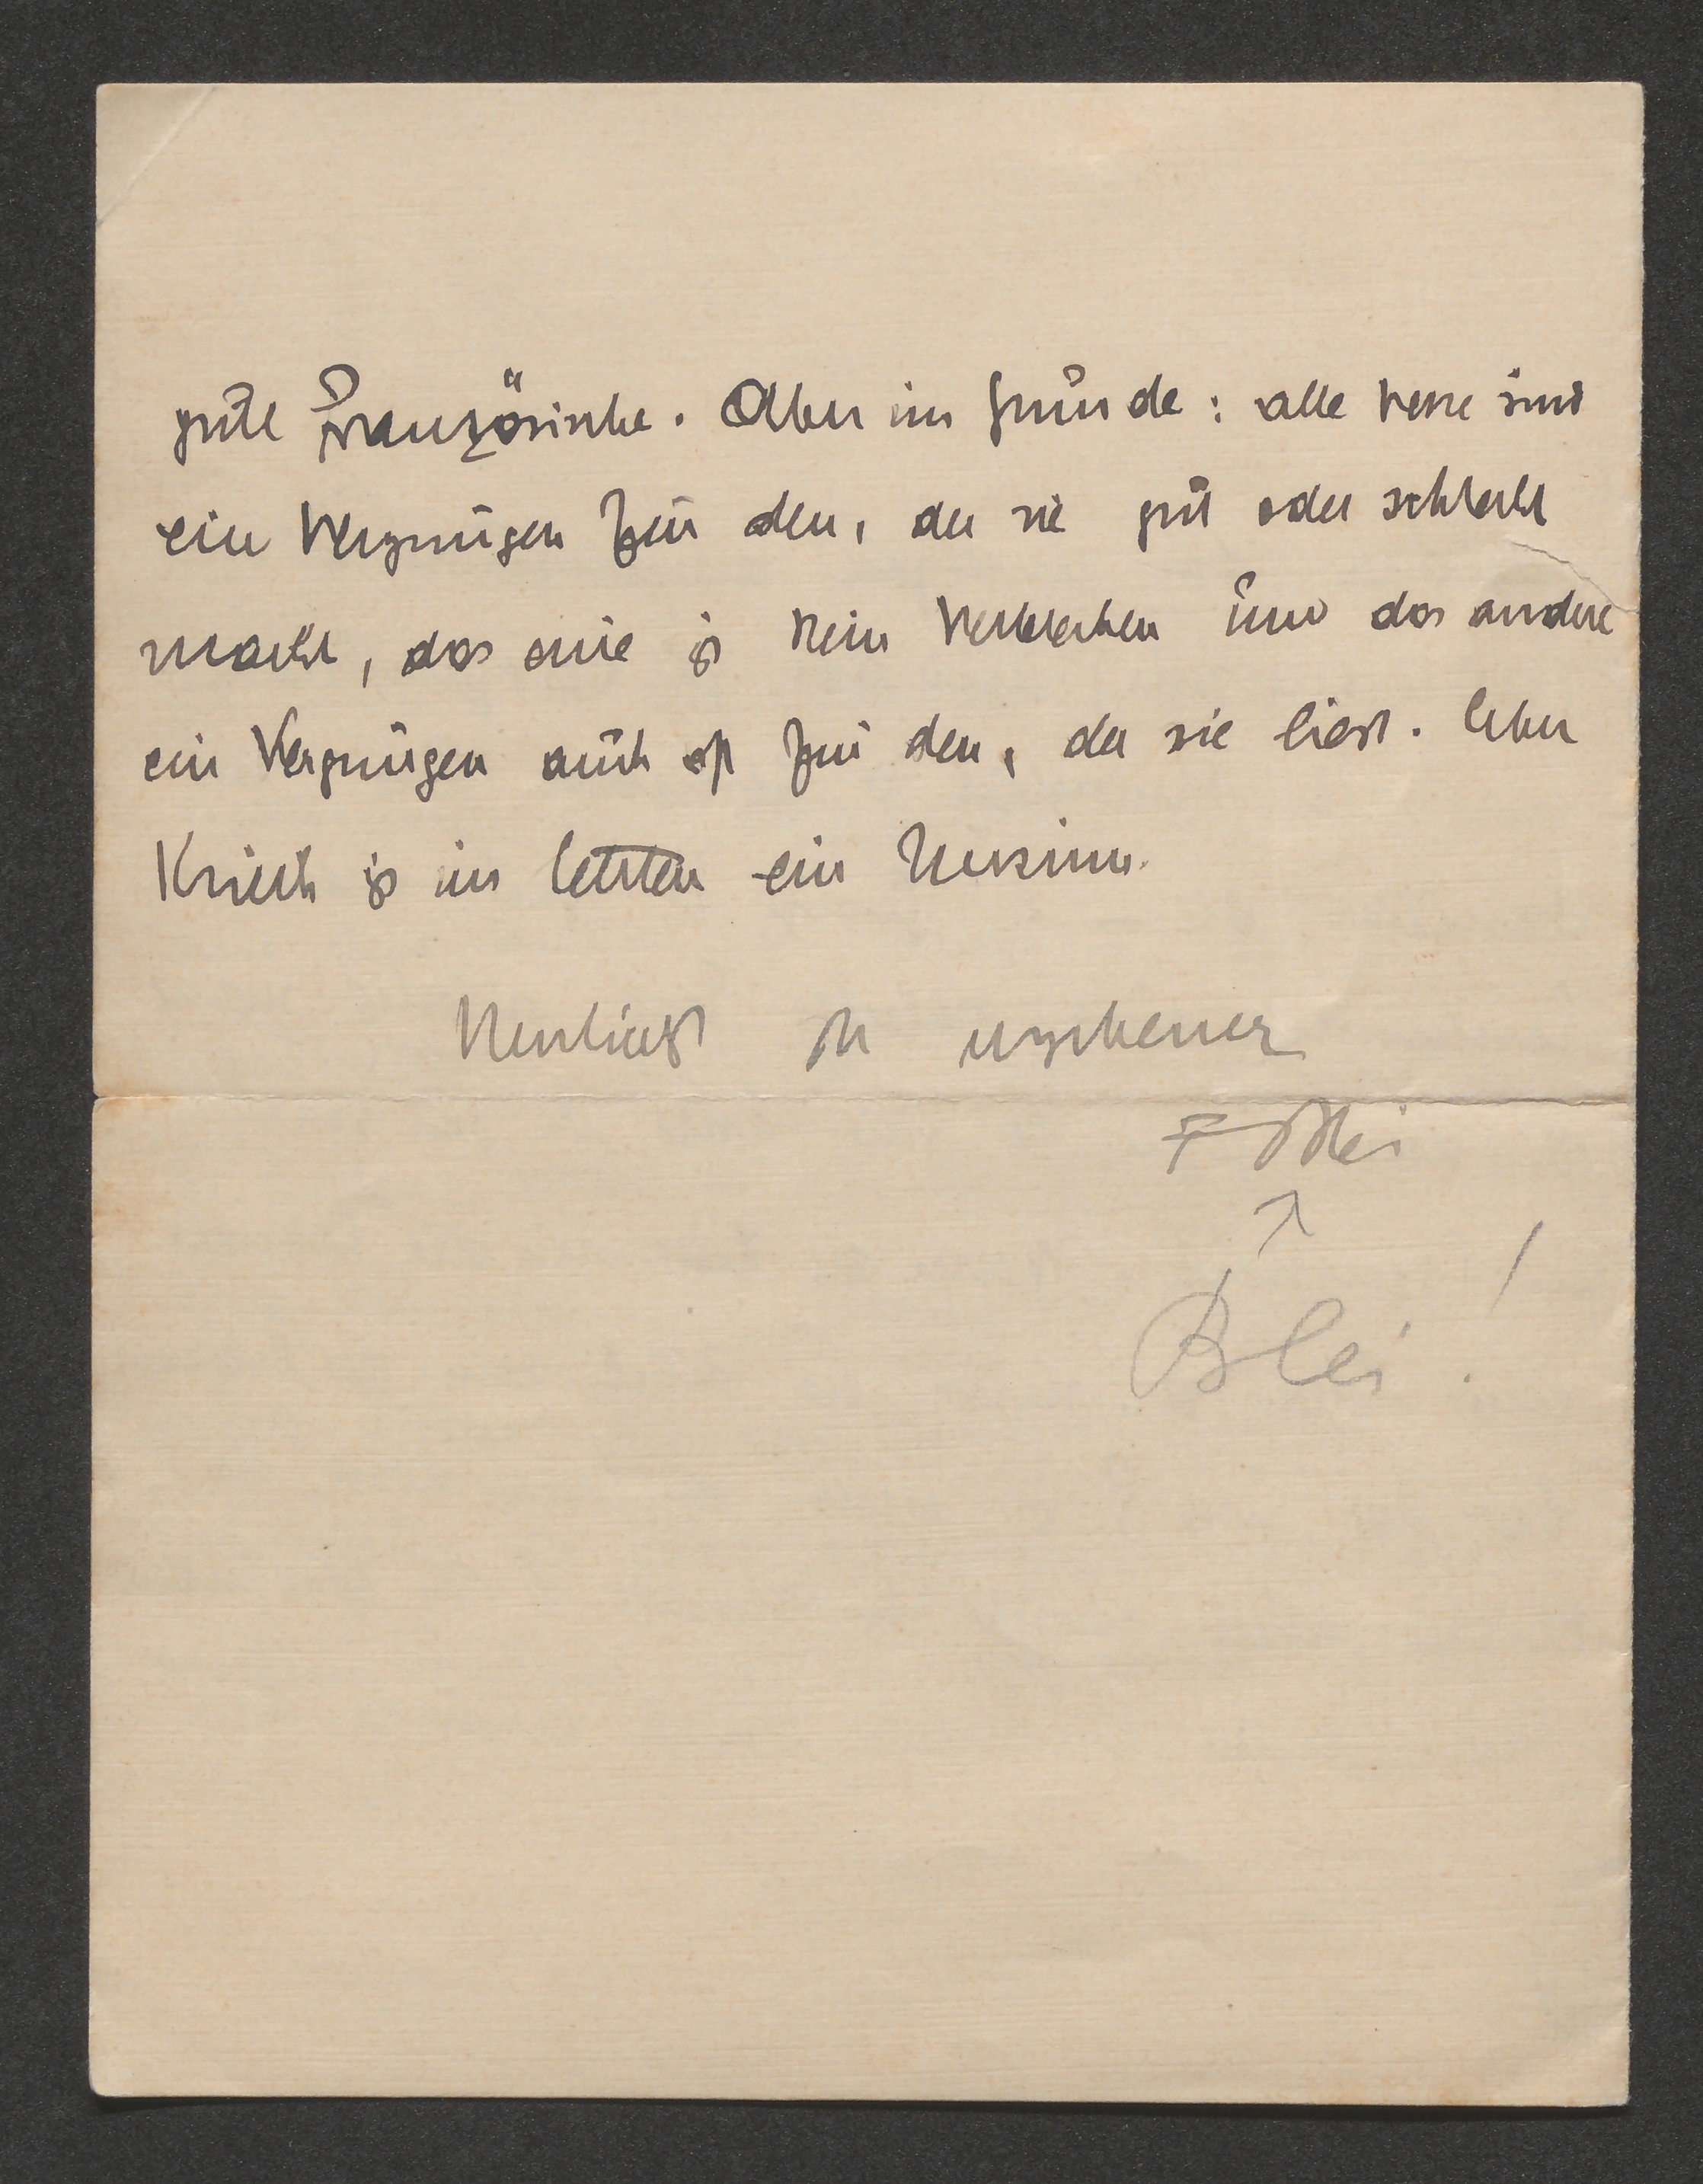 gute Französische. Aber im Grunde: alle Verse sind
ein Vergnügen für den, der sie gut oder schlecht
macht, das eine ist kein Verbrechen und das andere
ein Vergnügen auch oft für den, der sie liest. Aber
Kritik ist im letzten ein Unsinn.
Herzlichst Ihr ergebener
F Blei
Blei!